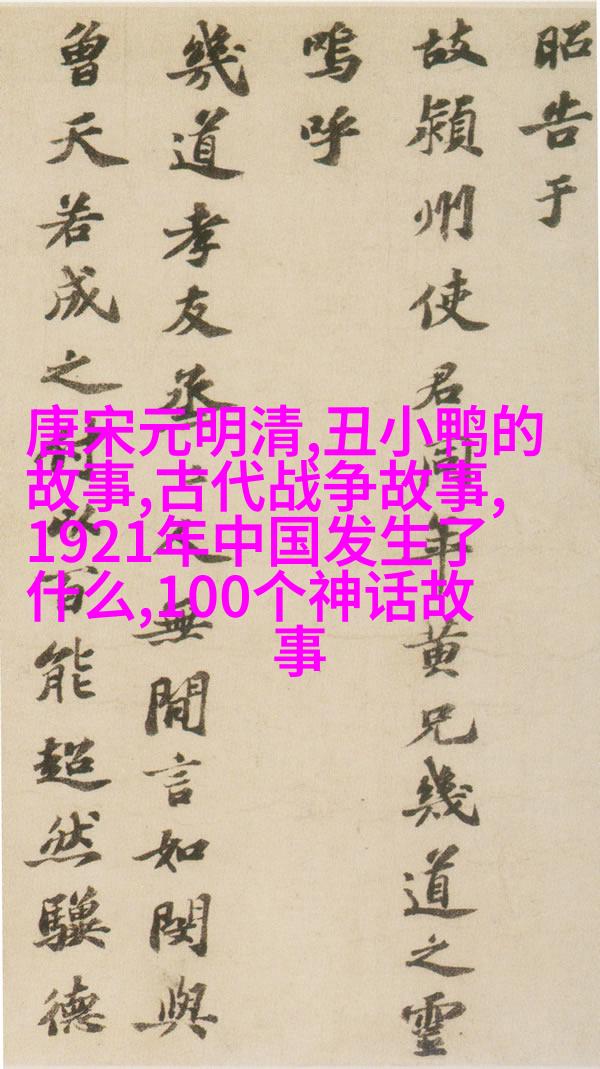 昭告于
故潁州使君同年黄兄幾道之靈
嗚呼
幾道孝友烝人無間言如閔與
曾天若成之付以百能超然驥德
唐宋元明清,丑小鸭的
故事,古代战争故事,
1921年中国发生了
什么,100个神话故
事